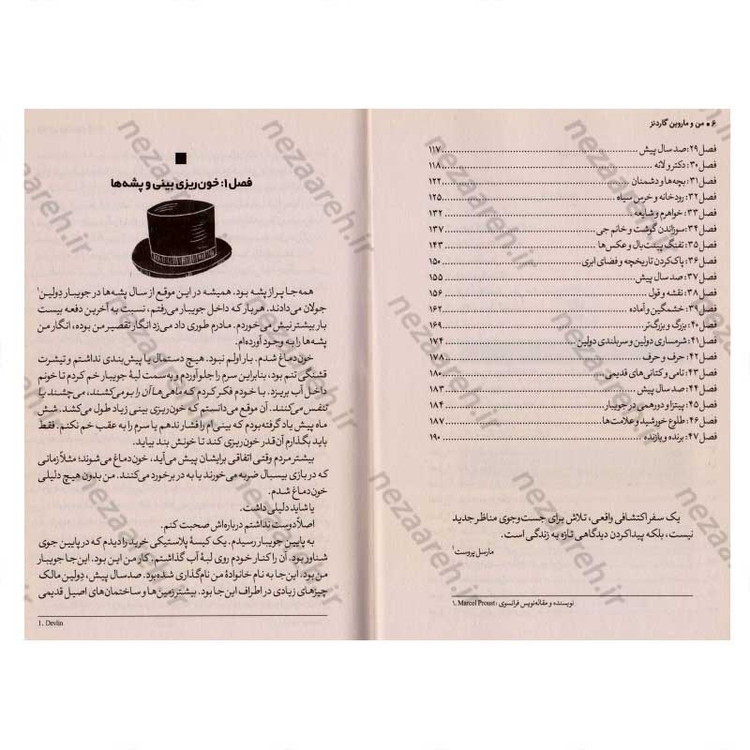 ۶ • من و ماروین گاردنز
فصل ۲۹: صد سال پیش ........ ۱۱۷
فصل ۳۰: دکتر و لانه ........ ۱۱۸
فصل ۳۱: بچه‌ها و دشمنان ........ ۱۲۲
فصل ۳۲: رودخانه و خرس سیاه ........ ۱۲۵
فصل ۳۳: خواهرم و شایعه ........ ۱۳۲
فصل ۳۴: سوزاندن گوشت و خانم جی ........ ۱۳۷
فصل ۳۵: تفنگ پینت‌بال و عکس‌ها ........ ۱۴۳
فصل ۳۶: پاک‌کردن تاریخچه و فضای ابری ........ ۱۵۰
فصل ۳۷: صد سال پیش ........ ۱۵۵
فصل ۳۸: نقشه و قول ........ ۱۵۶
فصل ۳۹: خشمگین و آماده ........ ۱۶۲
فصل ۴۰: بزرگ و بزرگ‌تر ........ ۱۶۹
فصل ۴۱: شرمساری دولین و سربلندی دولین ........ ۱۷۴
فصل ۴۲: حرف و حرف ........ ۱۷۸
فصل ۴۳: تامی و کتانی‌های قدیمی ........ ۱۸۰
فصل ۴۴: صد سال پیش ........ ۱۸۳
فصل ۴۵: پیتزا و دورهمی در جویبار ........ ۱۸۴
فصل ۴۶: طلوع خورشید و علامت‌ها ........ ۱۸۶
فصل ۴۷: برنده و بازنده ........ ۱۹۰
یک سفر اکتشافی واقعی، تلاش برای جست‌وجوی مناظر جدید
نیست، بلکه پیدا کردن دیدگاهی تازه به زندگی است.
مارسل پروست۱
۱. Marcel Proust: نویسنده و مقاله‌نویس فرانسوی
فصل ۱: خون‌ریزی بینی و پشه‌ها
همه‌جا پر از پشه بود. همیشه در این موقع از سال پشه‌ها در جویبار دِولین۱
جولان می‌دادند. هربار که داخل جویبار می‌رفتم، نسبت به آخرین دفعه بیست
بار بیشتر نیش می‌خوردم. مادرم طوری داد می‌زد انگار تقصیر من بوده، انگار من
پشه‌ها را به وجود آورده‌ام.
خون‌دماغ شدم. بار اولم نبود. هیچ دستمال یا پیش‌بندی نداشتم و تیشرت
قشنگی تنم بود، بنابراین سرم را جلو آوردم و به سمت لبهٔ جویبار خم کردم تا خونم
داخل آب بریزد. با خودم فکر کردم که ماهی‌ها آن را بو می‌کشند، می‌چشند یا
تنفس می‌کنند. آن موقع می‌دانستم که خون‌ریزی بینی زیاد طول می‌کشد. شش
ماه پیش یاد گرفته بودم که بینی‌ام را فشار ندهم یا سرم را به عقب خم نکنم. فقط
باید بگذارم آن‌قدر خون‌ریزی کند تا خونش بند بیاید.
بیشتر مردم وقتی اتفاقی برایشان پیش می‌آید، خون‌دماغ می‌شوند؛ مثلاً زمانی
که در بازی بیسبال ضربه می‌خورند یا به در برخورد می‌کنند. من بدون هیچ دلیلی
خون‌دماغ شدم.
یا شاید دلیلی داشت.
اصلاً دوست نداشتم درباره‌اش صحبت کنم.
به پایین جویبار رسیدم. یک کیسهٔ پلاستیکی خرید را دیدم که در پایین جوی
شناور بود. آن را کنار خودم روی لبهٔ آب گذاشتم. کار من این بود. این‌جا جویبار
من بود. این‌جا به نام خانوادهٔ من نام‌گذاری شده بود. صد سال پیش، دولین مالک
چیزهای زیادی در اطراف این‌جا بود. بیشتر زمین‌ها و ساختمان‌های اصیل قدیمی
1. Devlin
nezaareh.ir